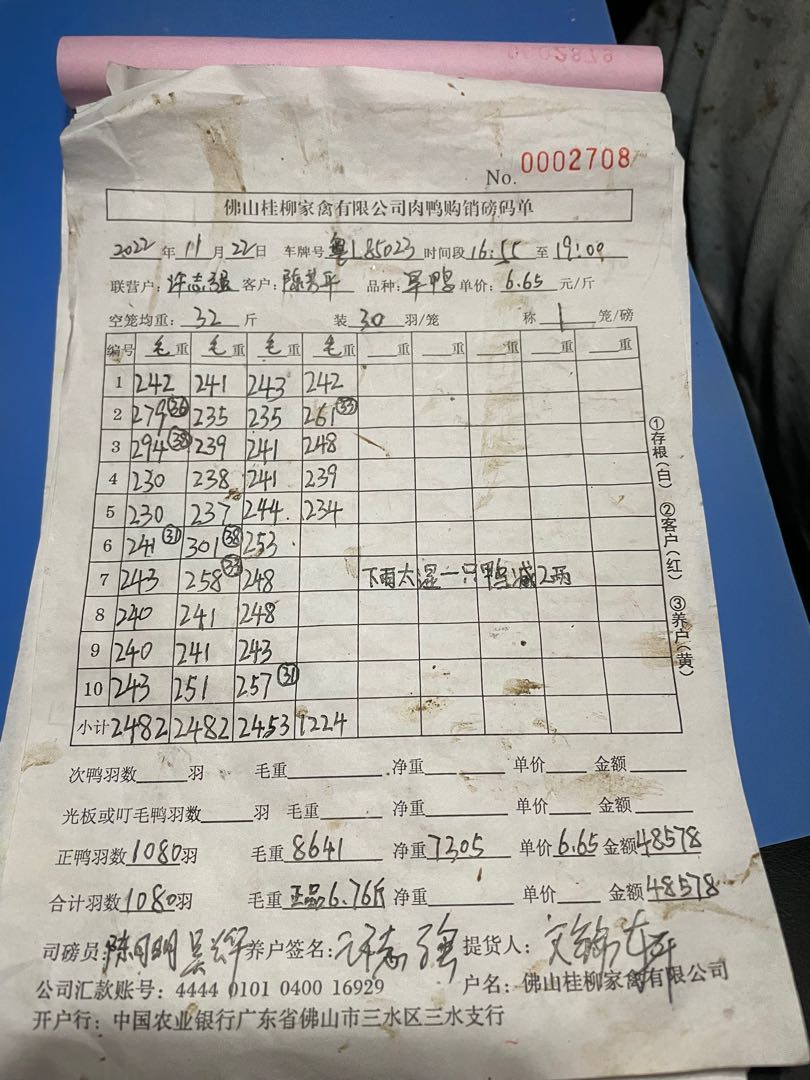 0002879
No. 0002708
佛山桂柳家禽有限公司肉鸭购销磅码单
2022 年 11 月 22 日 车牌号 粤L85023 时间段 16:55 至 19:00
联营户: 许志强 客户: 陈芳平 品种: 旱鸭 单价: 6.65 元/斤
空笼均重: 32 斤 装 30 羽/笼 称 1 笼/磅
编号 毛重 毛重 毛重 毛重 重 重 重 重 重
1 242 241 243 242
2 279 36 235 235 261 33
3 294 38 239 241 248
4 230 238 241 239
5 230 237 244 234
6 241 31 301 38 253
7 243 258 33 248 下雨太湿一只鸭减2两
8 240 241 248
9 240 241 243
10 243 251 257 31
小计 2482 2482 2453 1224
①存根(白) ②客户(红) ③养户(黄)
次鸭羽数 羽 毛重 净重 单价 金额
光板或叮毛鸭羽数 羽 毛重 净重 单价 金额
正鸭羽数 1080 羽 毛重 8641 净重 7305 单价 6.65 金额 48578
合计羽数 1080 羽 毛重 正品6.76斤 净重 单价 金额 48578
司磅员: 养户签名: 许志强 提货人:
公司汇款账号: 4444 0101 0400 16929 户名: 佛山桂柳家禽有限公司
开户行: 中国农业银行广东省佛山市三水区三水支行